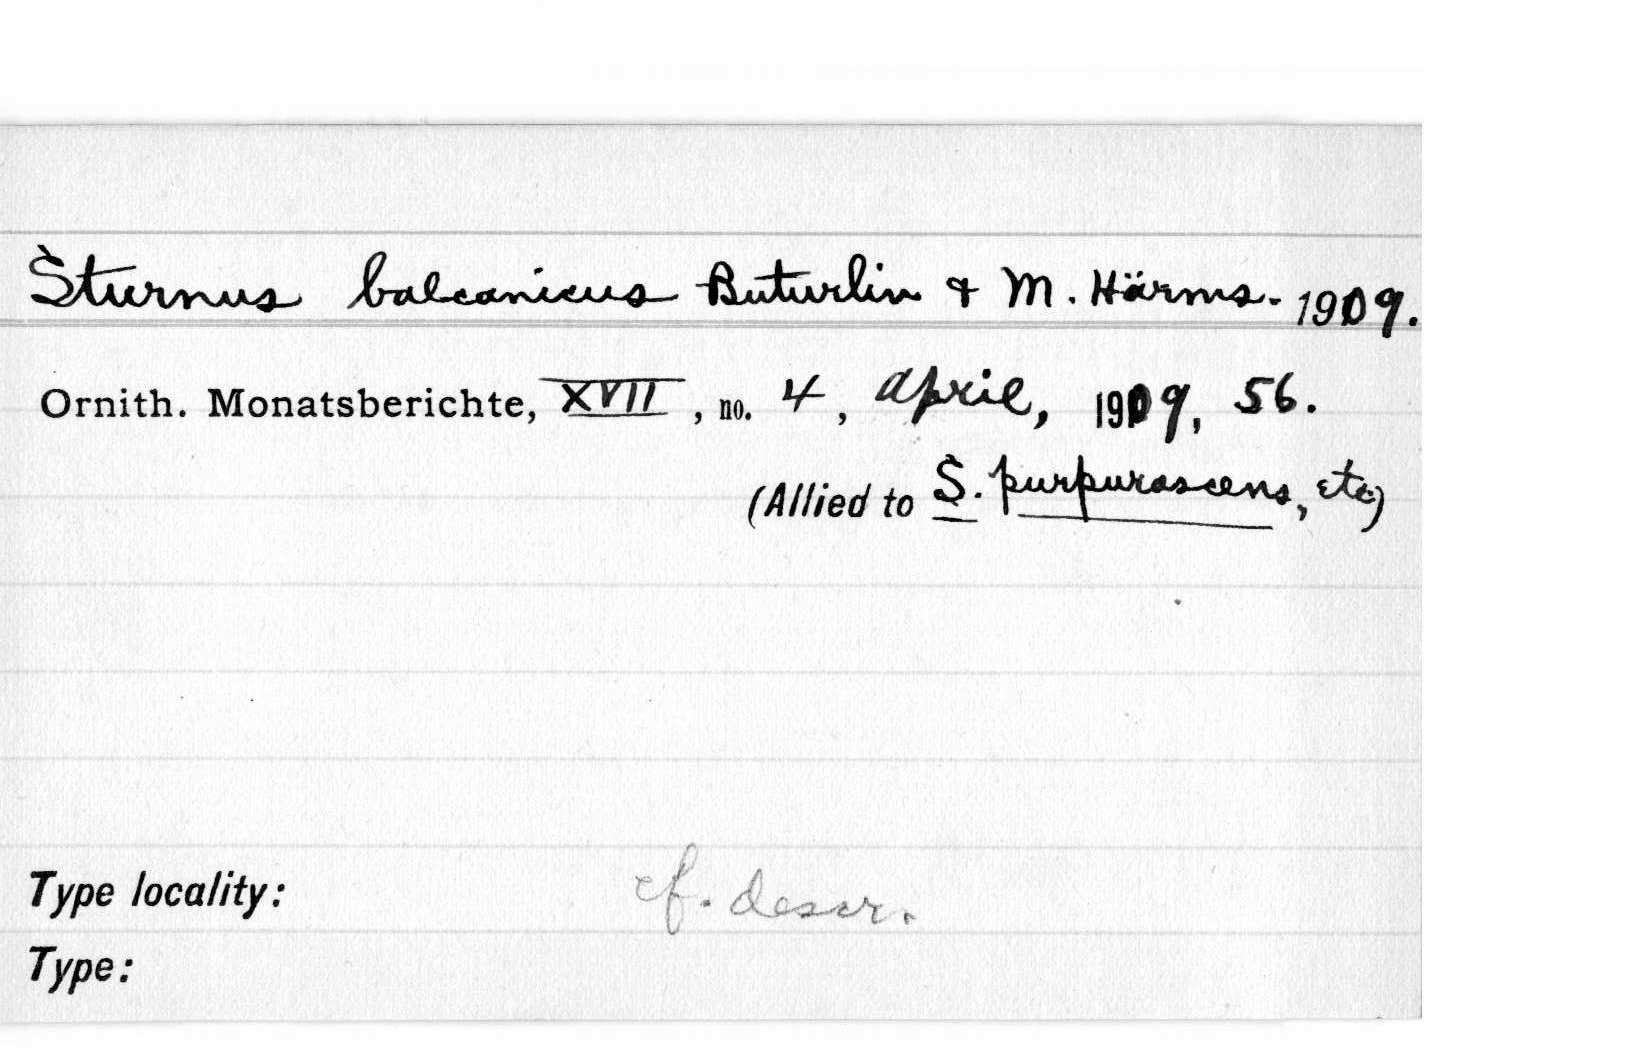 Sturnus balcanicus Buturlin & M. Härms. 1909.
Ornith. Monatsberichte, XVII, no. 4, April, 1909, 56.
(Allied to S. purpurascens, etc)
Type locality: cf. descr.
Type: